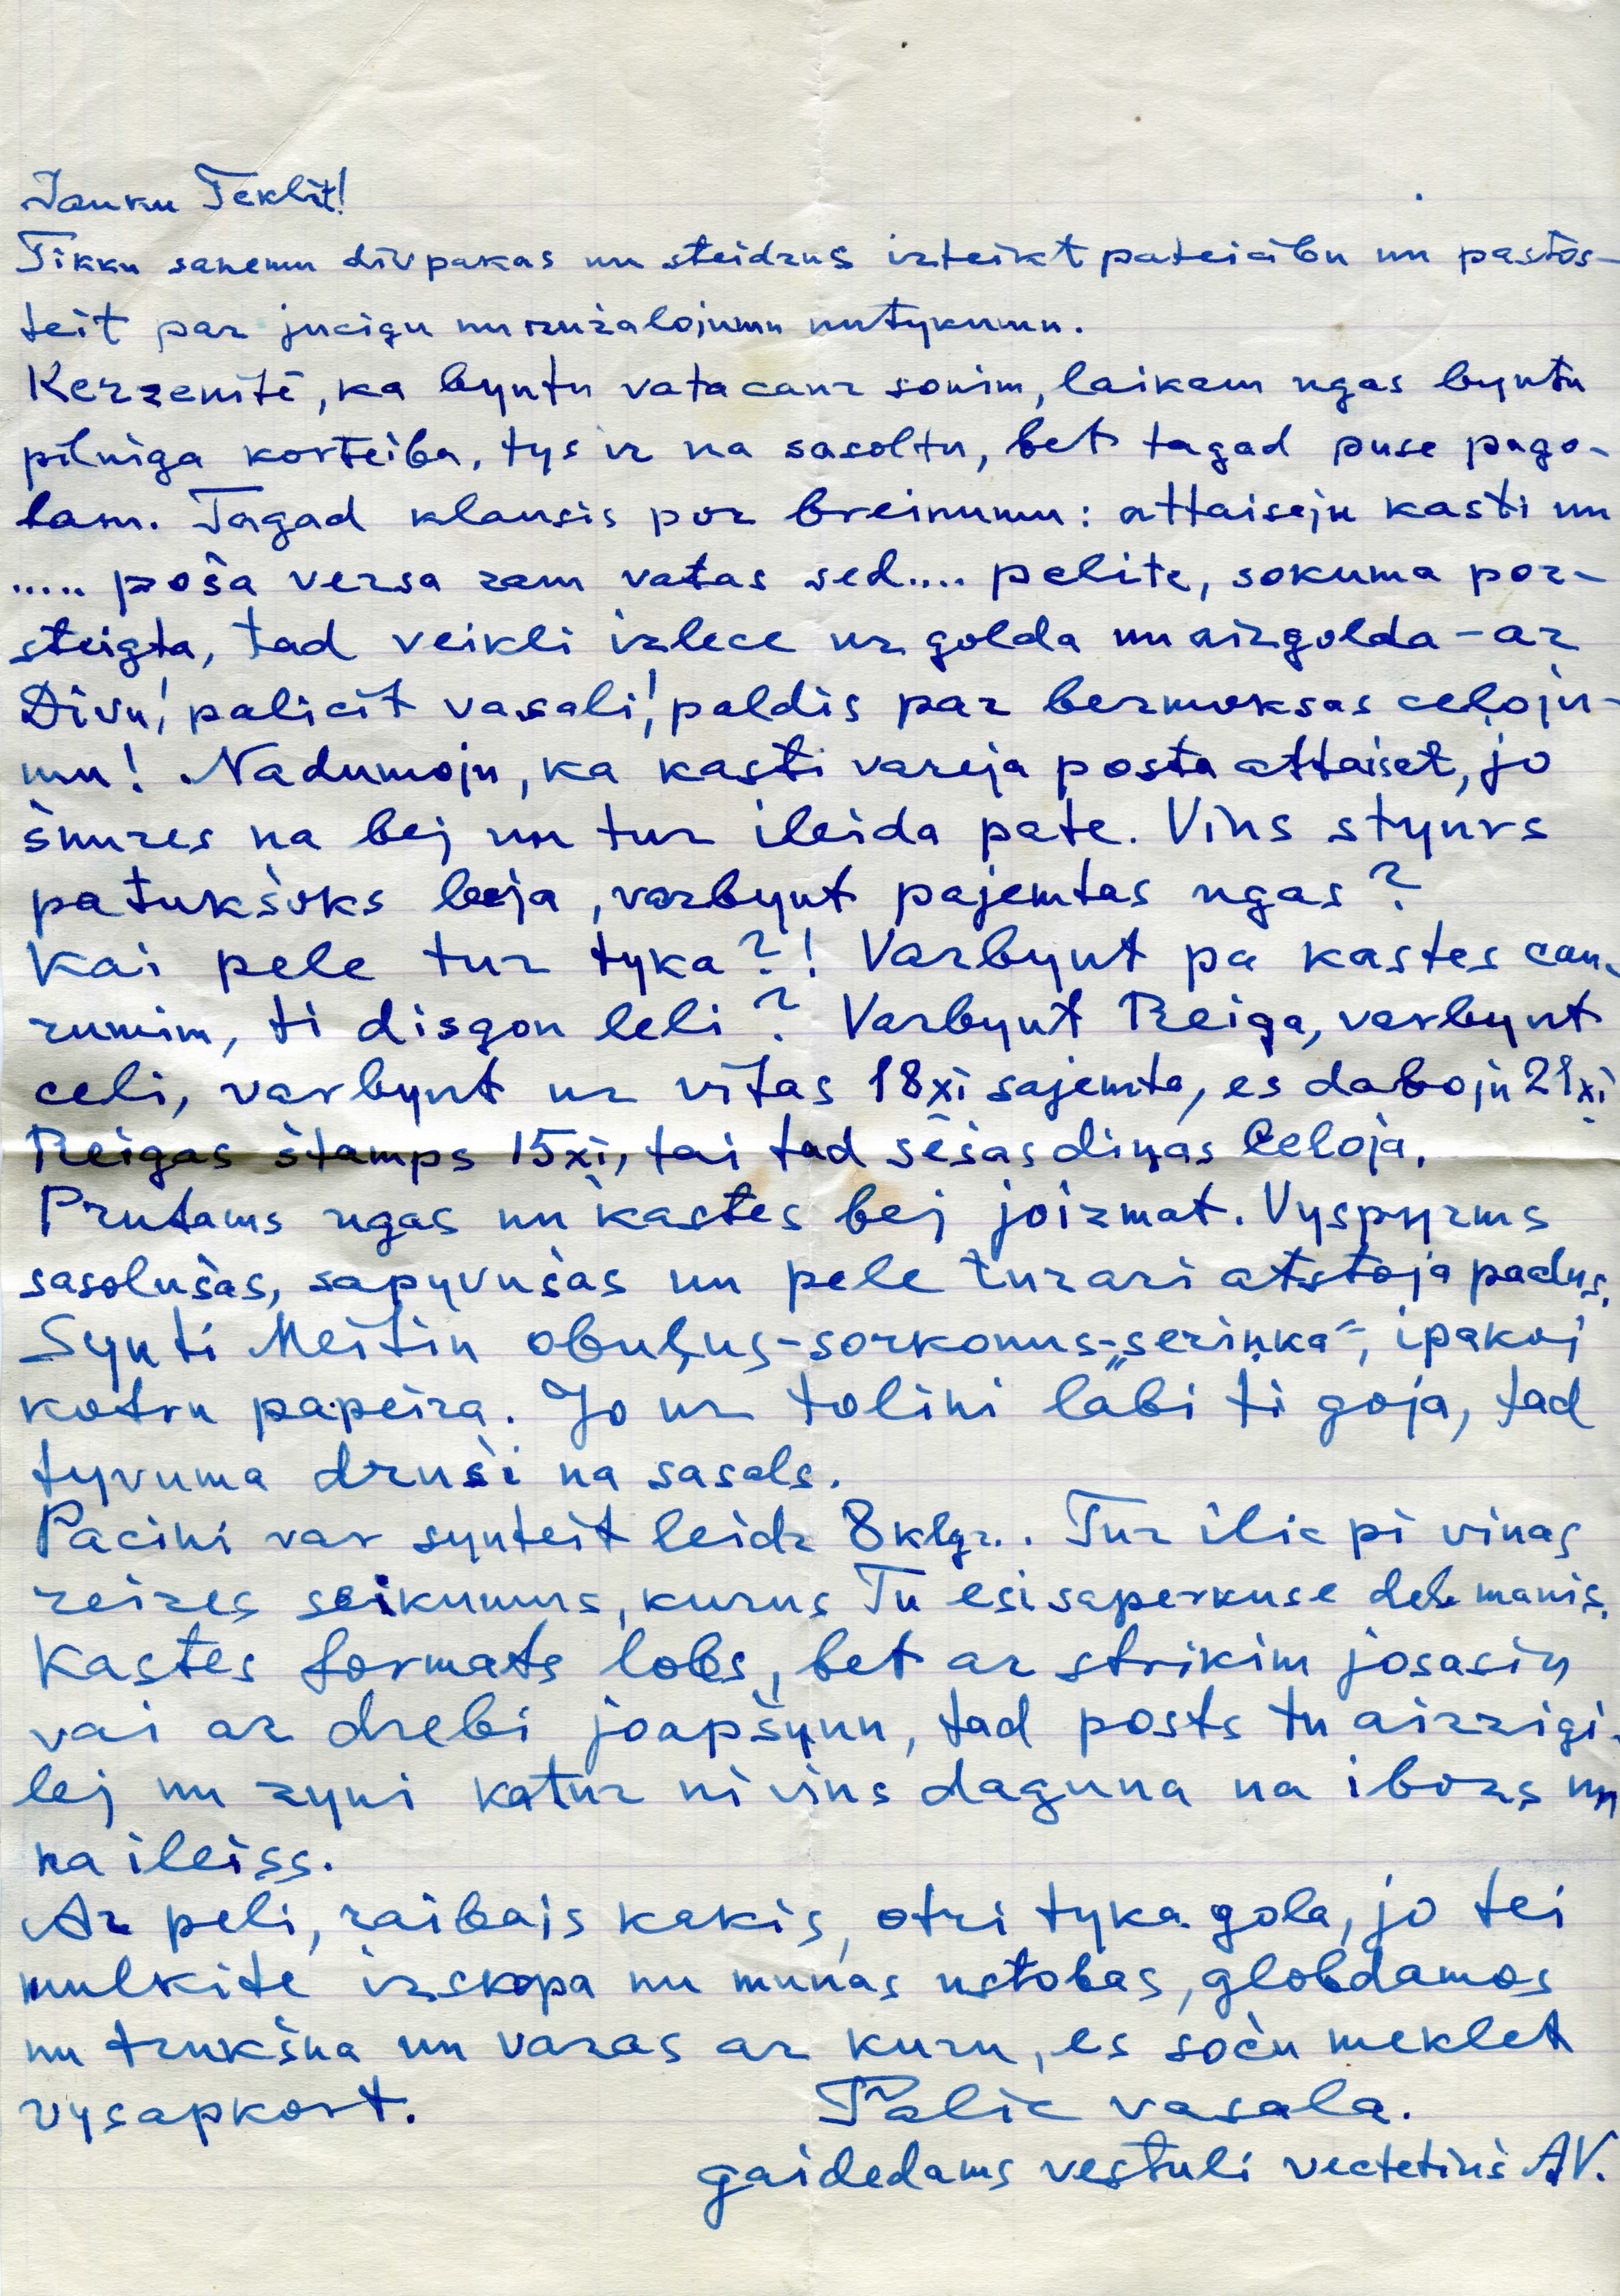 Jauku Teklit!
Tikku sanemu divpakas un steidzus izteikt pateicibu un pastōs-
teit par jucigu un izužalojumu nutykumu.
Kerzenitē, ka byutu vata caur sonim, laikam ugas byutu
pilniga korteiba, tys ir na sasoltu, bet tagad puse pago-
lam. Tagad klausis por breinumu: attaiseju kasti un
..... poša versa zam vatas sed.... pelite, sokuma por-
steigta, tad veikli izlece uz golda un aizgolda – ar
Divu! palicit vasali! paldis par bezmoksas celoju-
mu! Nadumoju, ka kasti vareja posta attaiset, jo
šnures na bej un tur ileida pate. Vins styurs
patukšoks beja, varbyut pajemtas ugas?
Kai pele tur tyka?! Varbyut pa kastes cau-
rumim, ti disgon leli? Varbyut Reiga, varbyut
celi, varbyut uz vitas 18xi sajemta, es daboju 21xi
Reigas štamps 15xi, tai tad sešas dinas celoja.
Prutams ugas nu kastes bej joizmat. Vyspyrms
sasolušas, sapyvušas un pele tur ari atstoja padus.
Synti Meitin obuļus-sorkonus-„seriņka", ipakoj
kotru papeira. Jo uz tolini labi ti goja, tad
tyvuma druši na sasals.
Pacini var synteit leidz 8 klgr.. Tur ilic pi vinas
reizes seikumus, kurus Tu esi saperkuse del manis.
Kastes formats lobs, bet ar strikim josasin
vai ar drebi joapšyun, tad posts tu aizzigi-
lej un zyni katur nivins daguna na ibozs un
na ileiss.
Ar peli, raibais kakis, otri tyka gola, jo tei
mulkite izskopa nu munas ustobas, globdamos
nu trukšna un varas ar kuru, es soču meklet
vysapkort. Palic vasala.
gaidedams vestuli vectetiņš AV.